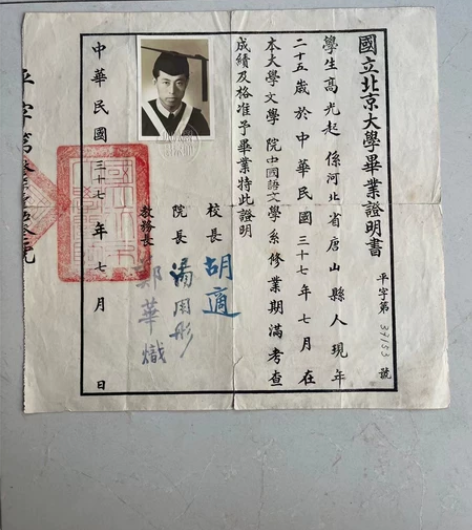 國立北京大學畢業證明書
平字第 37153 號
學生高光起係河北省唐山縣人現年
二十五歲於中華民國三十七年七月在
本大學文學院中國語文學系修業期滿考查
成績及格准予畢業特此證明
校長 胡適
院長 湯用彤
教務長 鄭華熾
中華民國三十七年七月 日
平字第
號